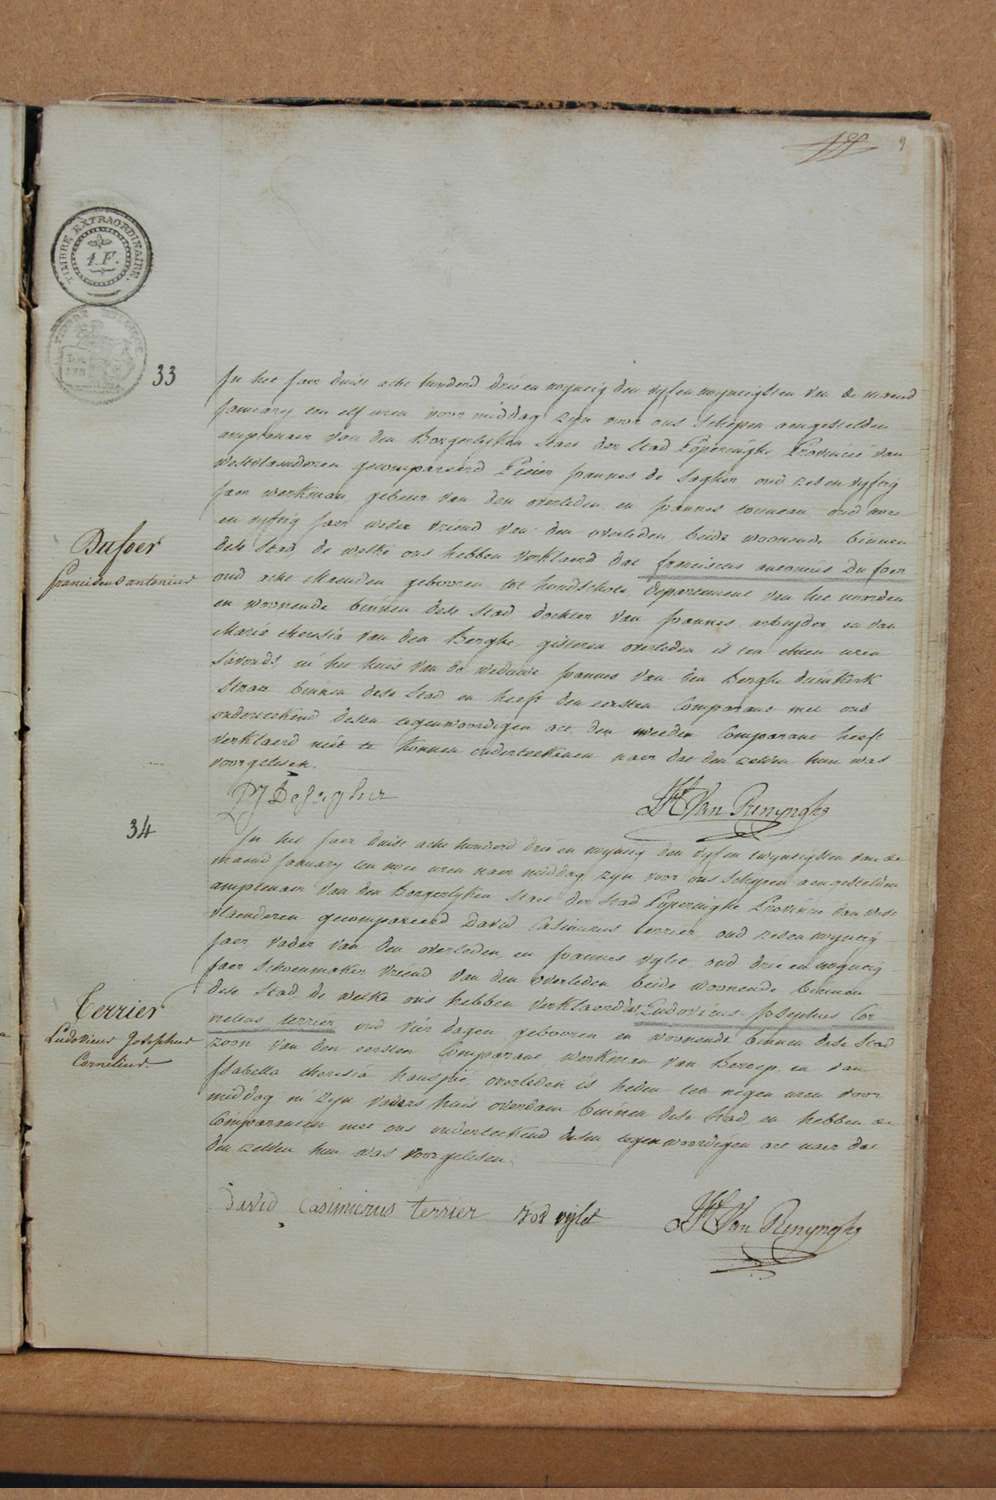 9
TIMBRE EXTRAORDINAIRE
1 F.
33
In het Jaer duist acht hondert drie en twyntig den vyfentwyntigsten van de maend
January ten elf uren voor middag zyn voor ons Schepen aengestelden
amptenaer van den Borgerlyken staet der Stad Poperinghe Provincie van
Westvlaenderen gecompareerd Pieter Joannes de Saghir oud zeven vyftig
Jaer werkman gebeur van den overleden en Joannes oud
en vyftig Jaer weder vriend van den overleden beide woonende binnen
dese Stad de welke ons hebben verklaerd dat franciscus antonius Dufoer
oud acht Maenden gebooren tot hondschote departement van het norden
en woonende binnen dese Stad van Joannes en van
Maria theresia van den Berghe gisteren overleden is ten uren
s'avonds in het huis van de weduwe Joannes van den Berghe duinkerk
straet binnen dese Stad en heeft den eersten Comparant met ons
onderteekend desen tegenwoordigen act den tweeden Comparant heeft
verklaerd niet te konnen onderteekenen naer dat den zelven hun was
voorgelesen.
Dufoer
franciscus antonius
PJ Desaghir
JH Van Renynghe
34
In het Jaer duist acht hondert drie en twyntig den vyfen twyntigsten van de
maend January ten twee uren naer middag zyn voor ons Schepen aengestelden
amptenaer van den Borgerlyken staet der Stad Poperinghe Provincie van West
vlaenderen gecompareerd David Casimirus terrier oud zeven twyntig
Jaer vader van den overleden en Joannes vylet oud drie en twyntig
Jaer Schoenmaker vriend van den overleden beide woonende binnen
dese Stad de welke ons hebben verklaerd dat Ludovicus Josephus Cor
nelius terrier oud vier dagen gebooren en woonende binnen dese Stad
zoon van den eersten Comparant werkman van Beroep en van
Isabella theresia hauspie overleden is heden ten negen uren voor
middag in zyn vaders huis overdam binnen dese Stad en hebben de
Comparanten met ons onderteekend desen tegenwoordigen act naer dat
den zelven hun was voorgelesen.
Terrier
Ludovicus Josephus
Cornelius
David Casimierus terrier
vylet
JH Van Renynghe